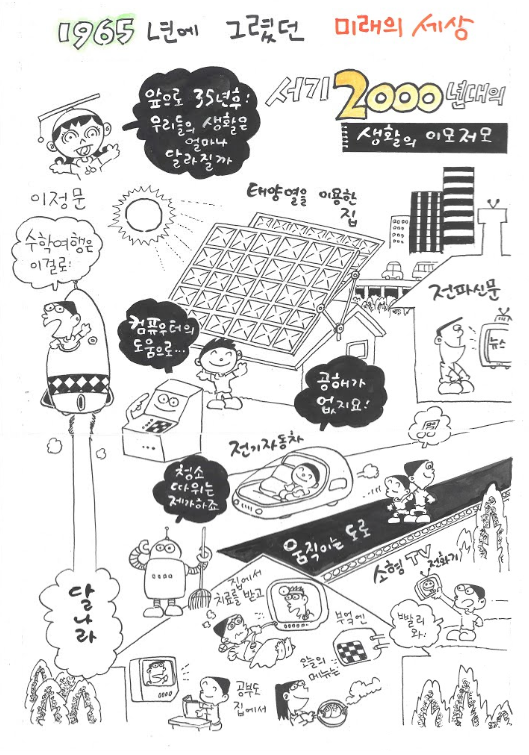 1965년에 그렸던 미래의 세상
앞으로 35년후!
우리들의 생활은
얼마나
달라질까
서기 2000년대의
생활의 이모저모
이정문
수학여행은
이걸로!
태양열을 이용한
집
전파신문
뉴스
컴퓨우터의
도움으로...
공해가
없지요!
전기자동차
청소
따위는
제가하죠
움직이는 도로
소형 TV
전화기
빨리
와!
달나라
집에서
치료를 받고
부엌엔
오늘의
메뉴는
공부도
집에서